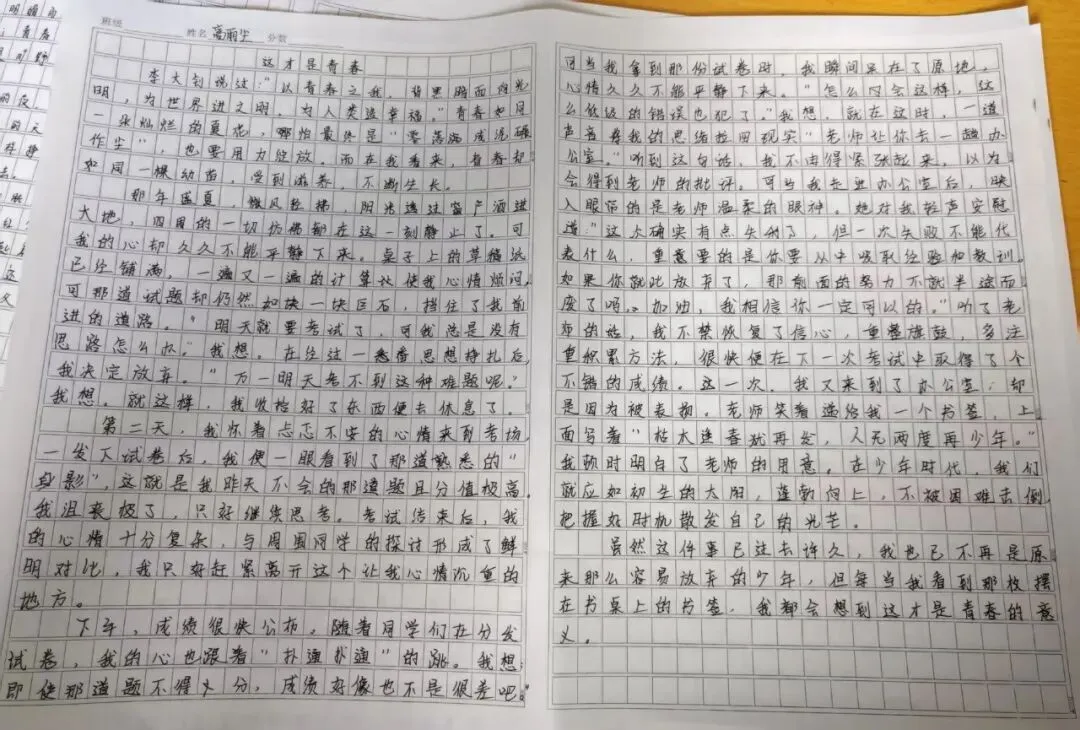 班级
姓名 高雨尘 分数
这才是青春
李大钊说过:“以青春之我,背黑暗而向光
明,为世界进文明,为人类造幸福。”青春如同
一朵灿烂的夏花,哪怕最终是“零落成泥碾
作尘”,也要用力绽放。而在我看来,青春却
如同一棵幼苗,受到滋养,不断生长。
那年盛夏,微风轻拂,阳光透过窗户洒进
大地,四周的一切仿佛都在这一刻静止了。可
我的心却久久不能平静下来。桌子上的草稿纸
已经铺满,一遍又一遍的计算让使我心情烦闷,
可那道试题却仍然如块一块巨石,挡住了我前
进的道路。“明天就要考试了,可我总是没有
思路怎么办。”我想。在经过一番思想挣扎后,
我决定放弃。“万一明天考不到这种难题呢。”
我想。就这样,我收拾好了东西便去休息了。
第二天,我怀着忐忑不安的心情来到考场,
一发下试卷后,我便一眼看到了那道熟悉的“
身影”,这就是我昨天不会的那道题且分值极高,
我沮丧极了,只好继续思考。考试结束后,我
的心情十分复杂,与周围同学的探讨形成了鲜
明对比,我只好赶紧离开这个让我心情沉重的
地方。
下午,成绩很快公布。随着同学们在分发
试卷,我的心也跟着“扑通扑通”的跳。我想
即使那道题不得分,成绩好像也不是很差吧。
可当我拿到那份试卷时,我瞬间呆在了原地,
心情久久不能平静下来。“怎么会这样,这
么低级的错误也犯了。”我想,就在这时,一道
声音将我的思绪拉回现实“老师让你去一趟办
公室。”听到这句话,我不由得紧张起来,以为
会得到老师的批评。可当我走进办公室后,映
入眼帘的是老师温柔的眼神。她对我轻声安慰
道:“这次确实有点失利了,但一次失败不能代
表什么,重要的是你要从中吸取经验和教训,
如果你就此放弃了,那前面的努力不就半途而
废了吗。加油,我相信你一定可以的。”听了老
师的话,我不禁恢复了信心,重整旗鼓,多注
重积累方法,很快便在下一次考试中取得了个
不错的成绩。这一次,我又来到了办公室,却
是因为被表扬。老师笑着递给我一个书签,上
面写着“枯木逢春犹再发,人无两度再少年。”
我顿时明白了老师的用意。在少年时代,我们
就应如初生的太阳,蓬勃向上,不被困难击倒,
把握好时机散发自己的光芒。
虽然这件事已过去许久,我也已不再是原
来那么容易放弃的少年,但每当我看到那枚摆
在书桌上的书签,我都会想到这才是青春的意
义。